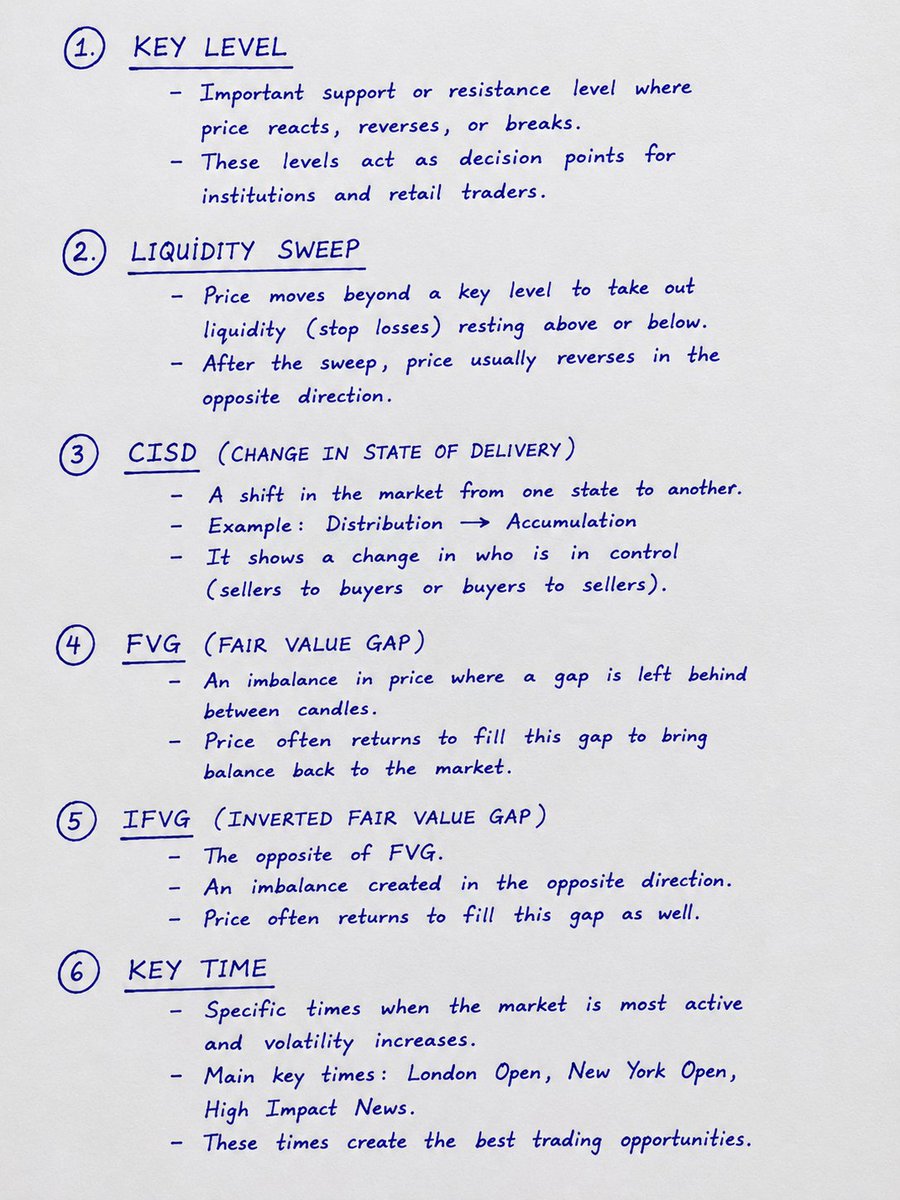 1. KEY LEVEL
- Important support or resistance level where
price reacts, reverses, or breaks.
- These levels act as decision points for
institutions and retail traders.
2. LIQUiDITY SWEEP
- Price moves beyond a key level to take out
liquidity (stop losses) resting above or below.
- After the sweep, price usually reverses in the
opposite direction.
3 CISD (CHANGE IN STATE OF DELIVERY)
- A shift in the market from one state to another.
- Example: Distribution → Accumulation
- It shows a change in who is in control
(sellers to buyers or buyers to sellers).
4 FVG (FAIR VALUE GAP)
- An imbalance in price where a gap is left behind
between candles.
- Price often returns to fill this gap to bring
balance back to the market.
5 IFVG (INVERTED FAIR VALUE GAP)
- The opposite of FVG.
- An imbalance created in the opposite direction.
- Price often returns to fill this gap as well.
6 KEY TIME
- Specific times when the market is most active
and volatility increases.
- Main key times: London Open, New York Open,
High Impact News.
- These times create the best trading opportunities.